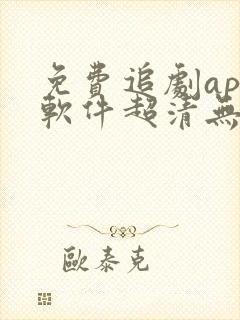 免費追劇ap
軟件超清無
歐泰克